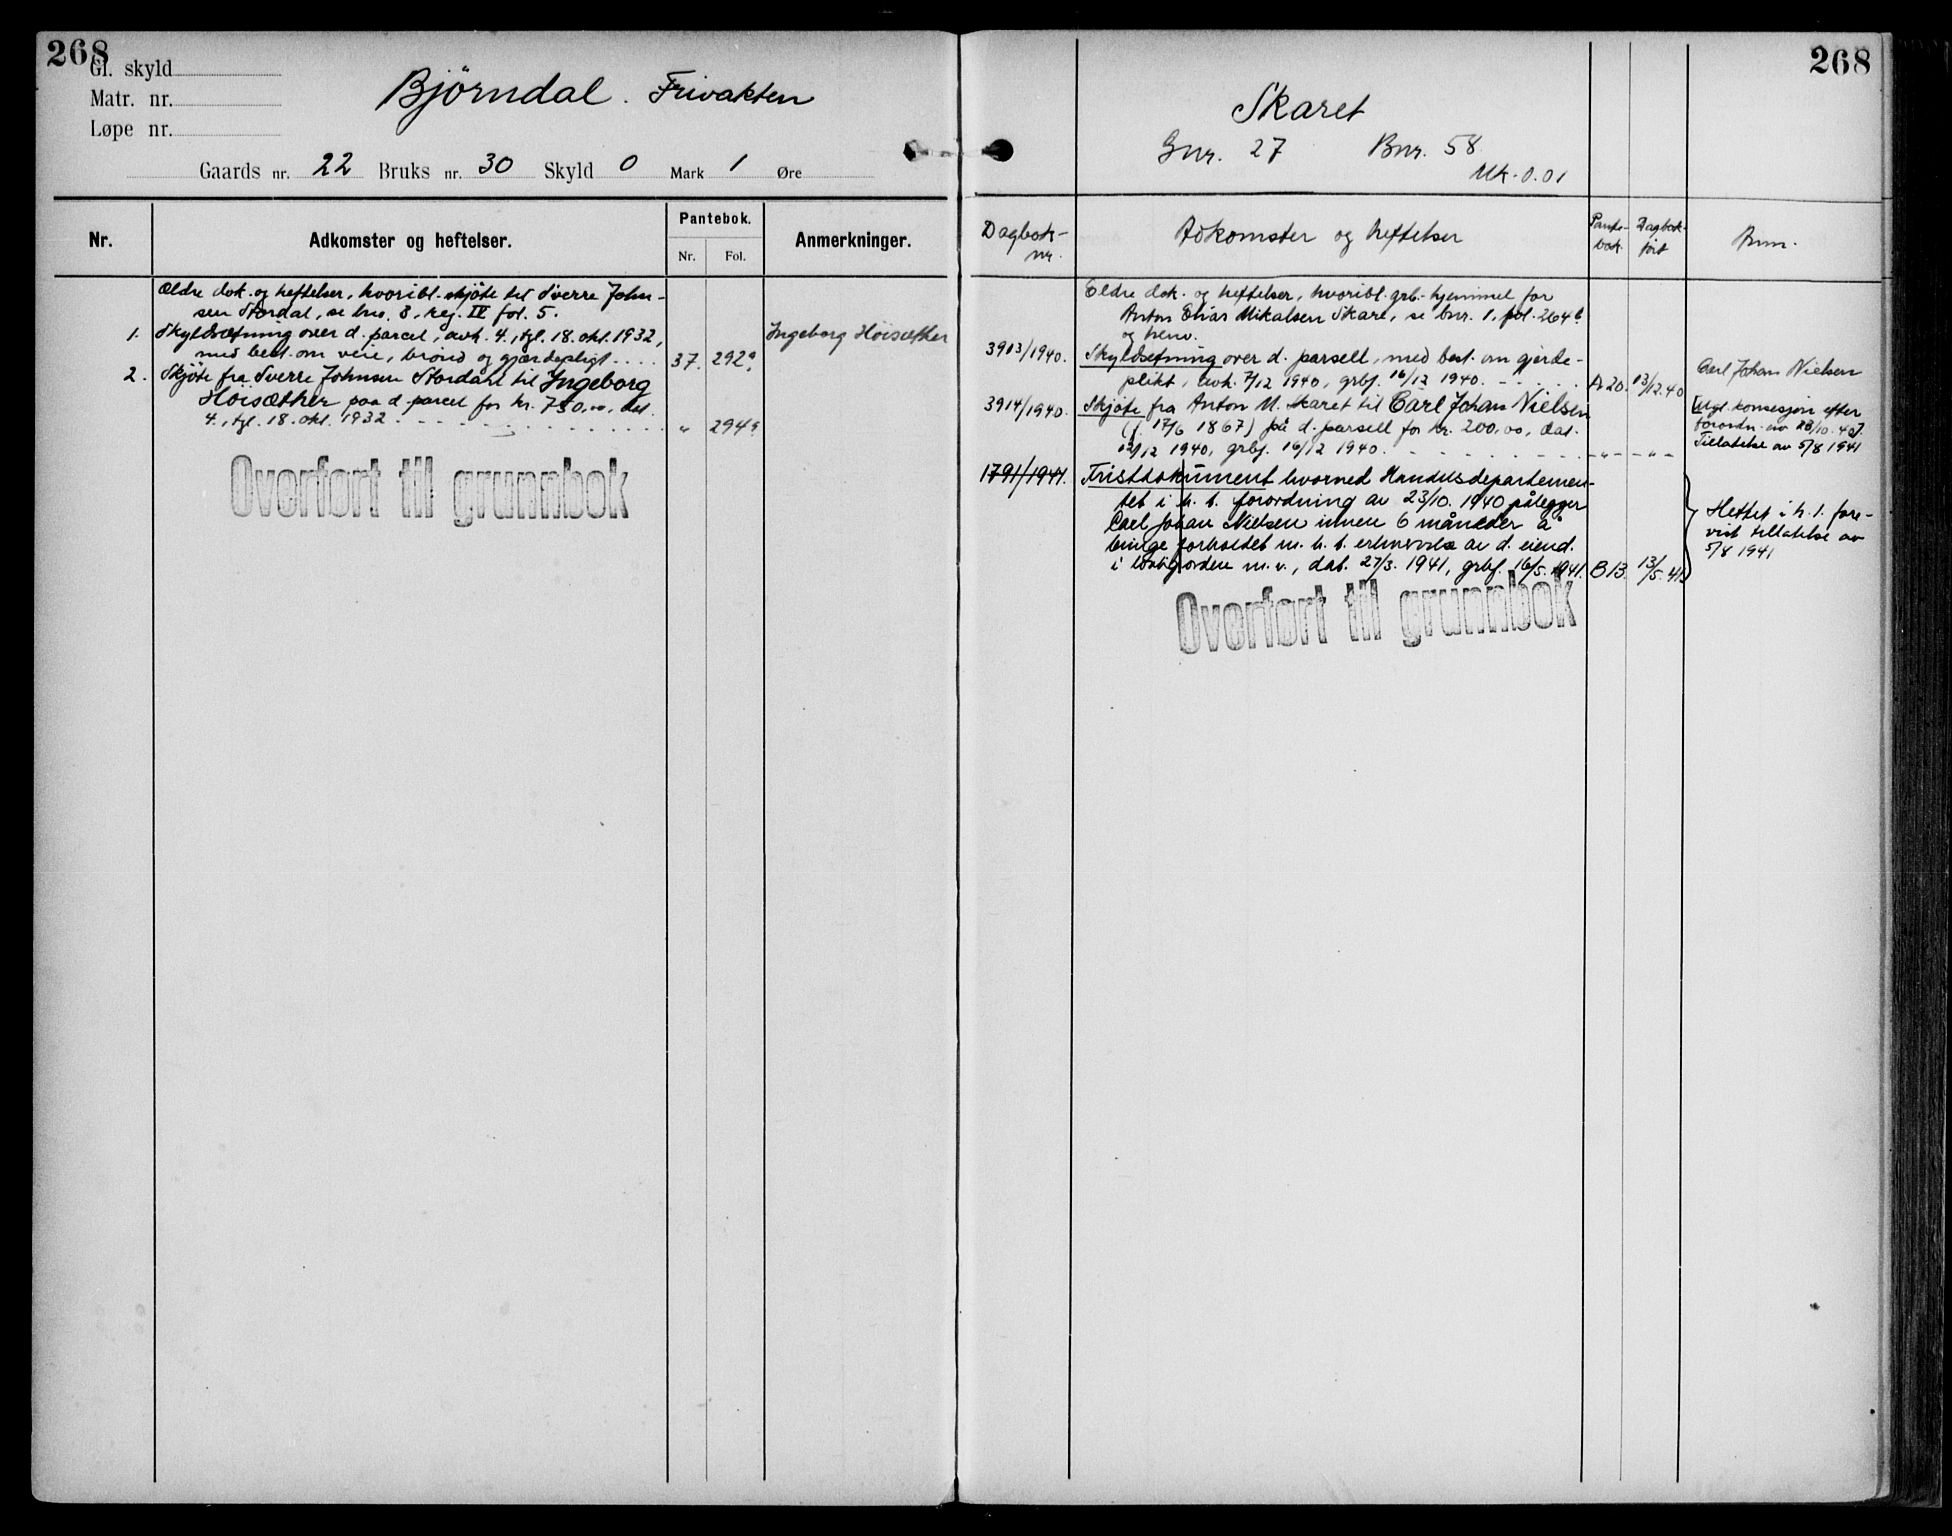 268
Gl. skyld
Matr. nr.
Løpe nr.
Bjørndal. Frivakten
Gaards nr. 22 Bruks nr. 30 Skyld 0 Mark 1 Øre
Nr.
Adkomster og heftelser.
Pantebok.
Nr. Fol.
Anmerkninger.
Ældre dok. og heftelser, hvoribl. skjøte til Sverre John-
sen Stordal, se bno. 8, reg. IV fol. 5.
1. Skyldsætning over d. parcel, avh. 4., tgl. 18. okt. 1932,
med best. om veie, brønd og gjærdepligt . . . . 37. 292
Ingeborg Hoisæther
2. Skjøte fra Sverre Johnsen Stordahl til Ingeborg
Hoisæther paa d. parcel for kr. 750,00, dat.
4., tgl. 18. okt. 1932 . . . . . . . . . . „ 294
Overført til grunnbok
268
Skaret
Gnr. 27 Bnr. 58
Mk. 0.01
Dagbok-
nr.
Adkomster og heftelser
Pante-
bok
Dagbok-
ført
Anm.
Eldre dok. og heftelser, hvoribl. grb.-hjemmel for
Anton Elias Mikalsen Skaret, se bnr. 1, fol. 264
og henv.
3913/1940. Skyldsetning over d. parsell, med best. om gjerde-
plikt, avh. 7/12 1940, grbf. 16/12 1940. - - - - - A 20. 13/12.40
Carl Johan Nielsen
3914/1940. Skjøte fra Anton M. Skaret til Carl Johan Nielsen
(f. 17/6 1867) på d. parsell for kr. 200,00, dat.
12/12 1940, grbf. 16/12 1940. - - - - - - - - „ - - „ -
[Mgl. konsesjon efter
forordn. av 23/10.40].
Tillatelse av 5/8 1941
1791/1941. Fristdokument hvorved Handelsdepartemen-
tet i h. t. forordning av 23/10. 1940 pålegger
Carl Johan Nielsen innen 6 måneder å
bringe forholdet m. h. t. ervervelse av d. eiend.
i lovlig orden m. v., dat. 27/3. 1941, grbf. 16/5. 1941. B 13. 13/5.41
Slettet i h. t. fore-
vist tillatelse av
5/8 1941
Overført til grunnbok